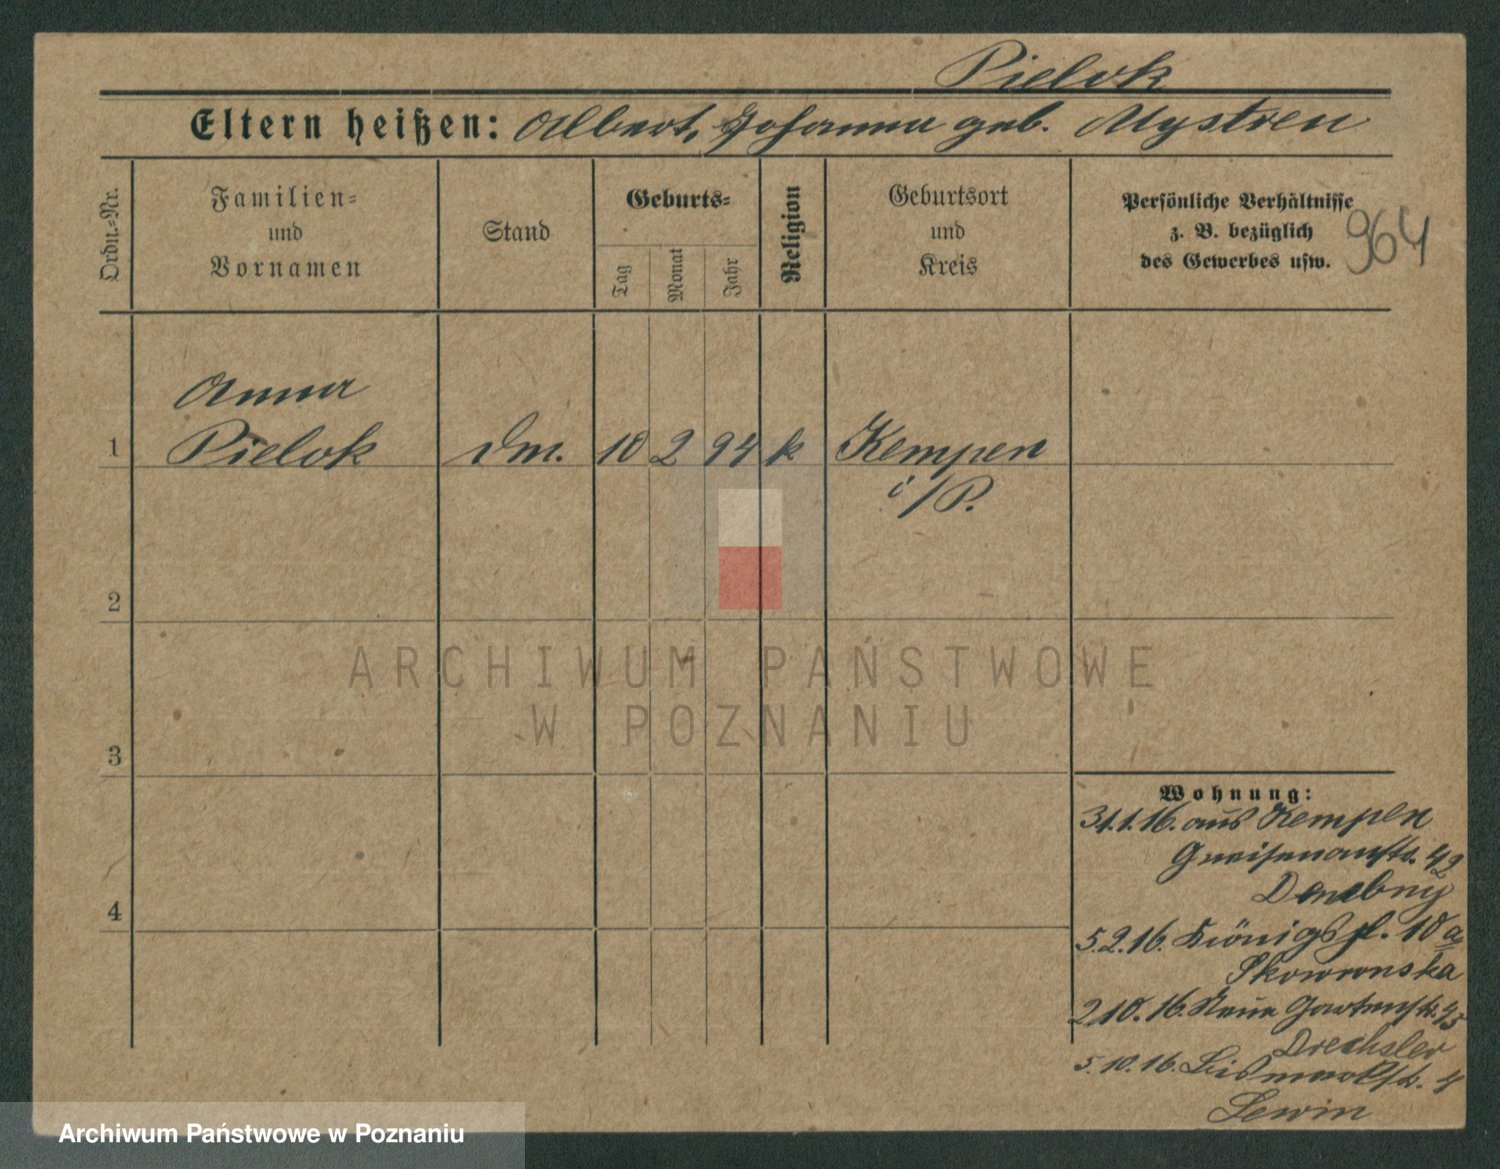 Pielok
Eltern heißen: Albert, Johanna geb. Mystren
Ordn.-Nr.
Familien- und Vornamen
Stand
Geburts-
Tag
Monat
Jahr
Religion
Geburtsort und Kreis
Persönliche Verhältnisse
z. B. bezüglich
des Gewerbes usw.
964
Anna
1 Pielok Dm. 10 2 94 k Kempen
i/P.
2
3
4
ARCHIWUM PAŃSTWOWE
W POZNANIU
Wohnung:
31.1.16. aus Kempen
Gneisenaustr. 42
5.2.16. Königspl. 10a
Skowronska
2.10.16. Neue Gartenstr. 45
Drechsler
5.10.16. Bismarckstr. 4
Lewin
Archiwum Państwowe w Poznaniu